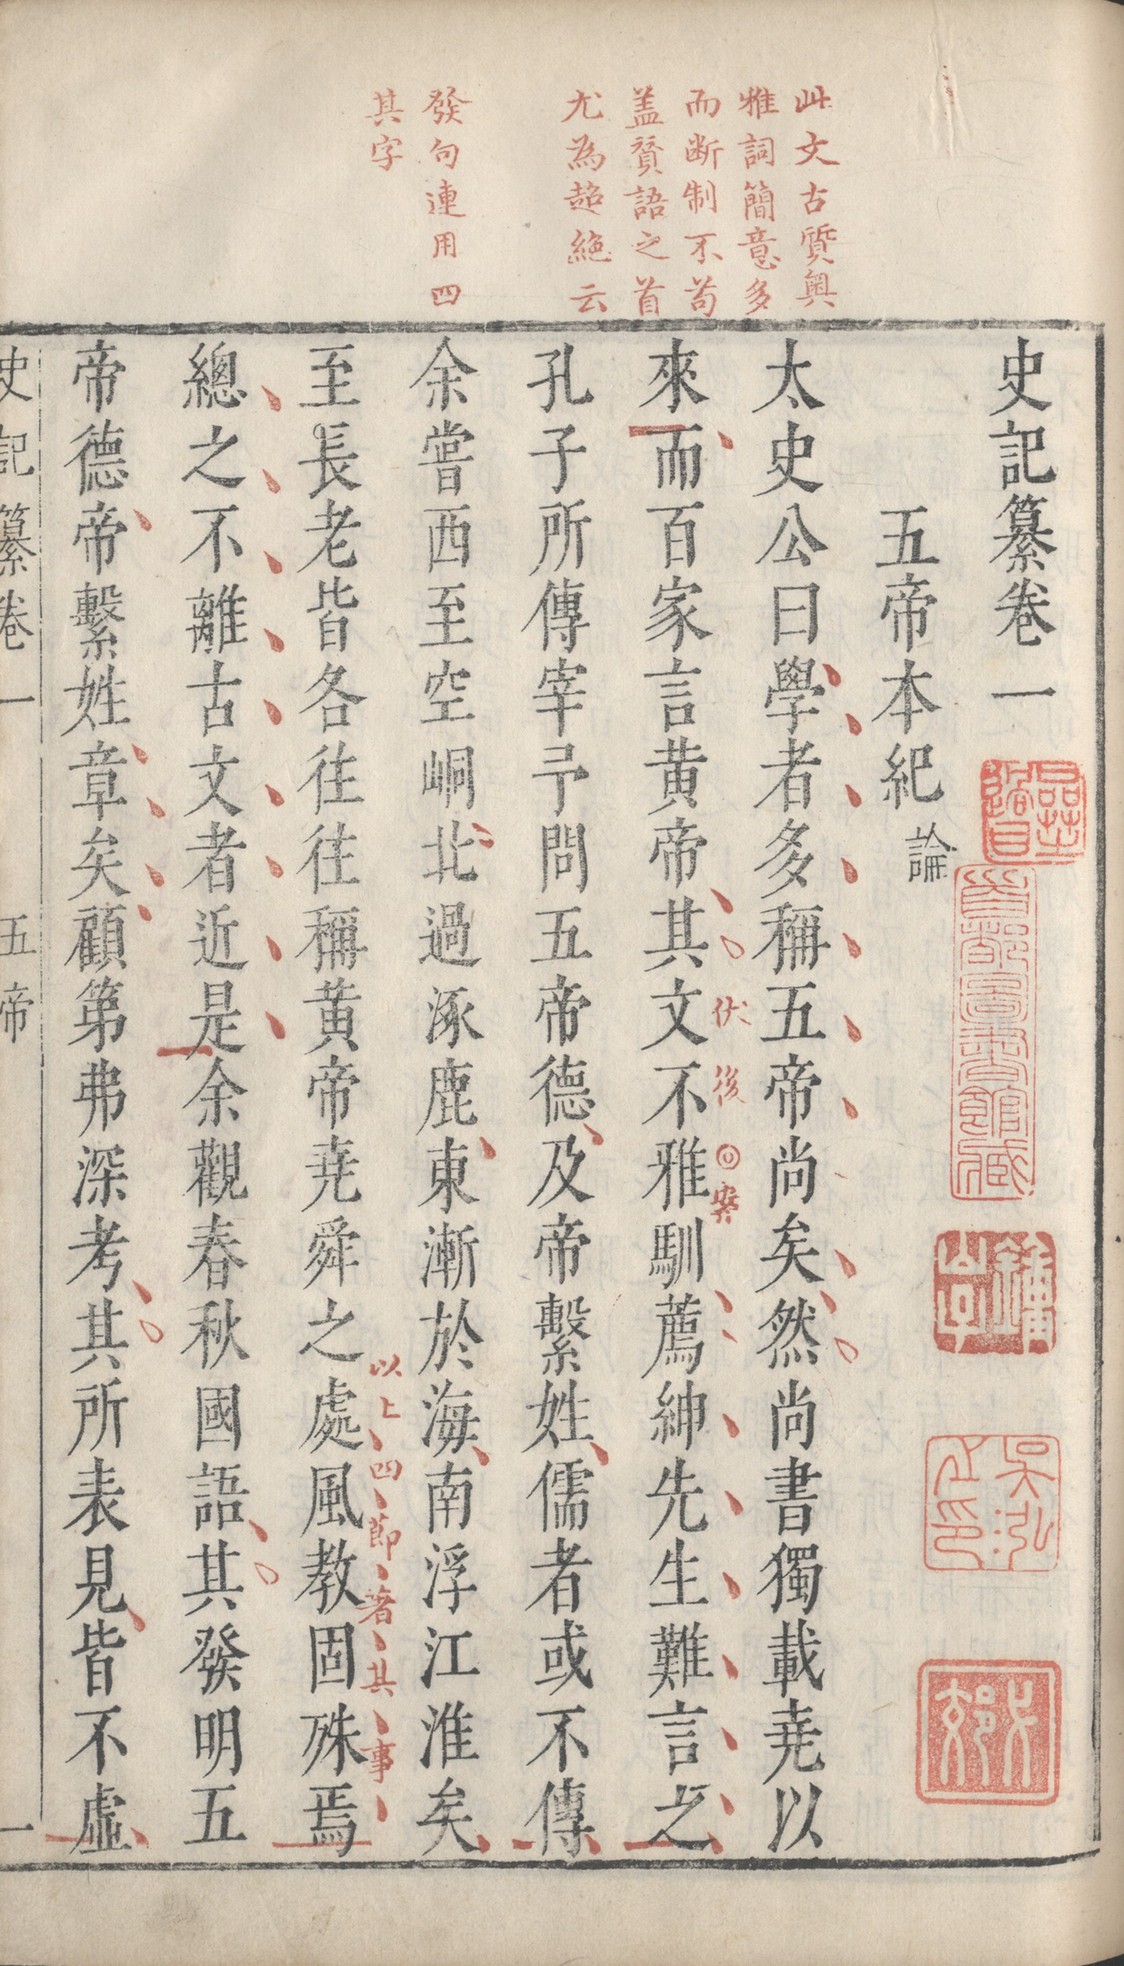 此文古質奧
雅詞簡意多
而断制不苟
盖贊語之首
尤為超絶云
發句連用四
其字
史記纂卷一
五帝本紀論
太史公曰學者多稱五帝尚矣然尚書獨載堯以
來而百家言黄帝其文不雅馴薦紳先生難言之
伏後案
孔子所傳宰予問五帝德及帝繫姓儒者或不傳
余嘗西至空峒北過涿鹿東漸於海南浮江淮矣
至長老皆各往往稱黄帝堯舜之處風教固殊焉
以上四節著其事
總之不離古文者近是余觀春秋國語其發明五
帝德帝繫姓章矣顧第弗深考其所表見皆不虛
史記纂卷一 五帝 一
首都圖書館藏
吳弘
人印